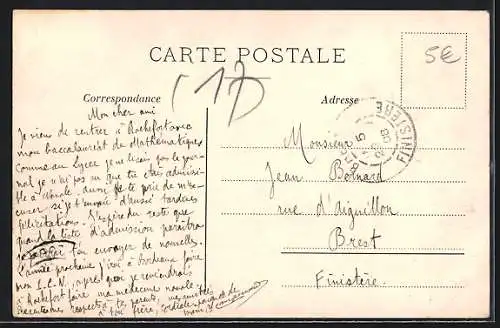 CARTE POSTALE
5€
(17
Correspondance
Adresse
Mon cher ami
Je viens de rentrer à Rochefort avec
mon baccalauréat de Mathématiques
Comme au Lycée je ne lisais pas le jour-
nal je n'ai pas su que tu étais admissi-
ble à Navale. Aussi je te prie de m'ex-
cuser si je t'envoie d'aussi tardives
félicitations. J'espère du reste que
quand la liste d'admission paraîtra
de nouvelles.
L'année prochaine j'irai à Bordeaux faire
mon P.C.N, après quoi je reviendrai
à Rochefort faire ma médecine navale.
respects à tes parents,
à ton frère,
Monsieur
Jean Bernard
rue d'Aiguillon
Brest
Finistère.
FINISTERE